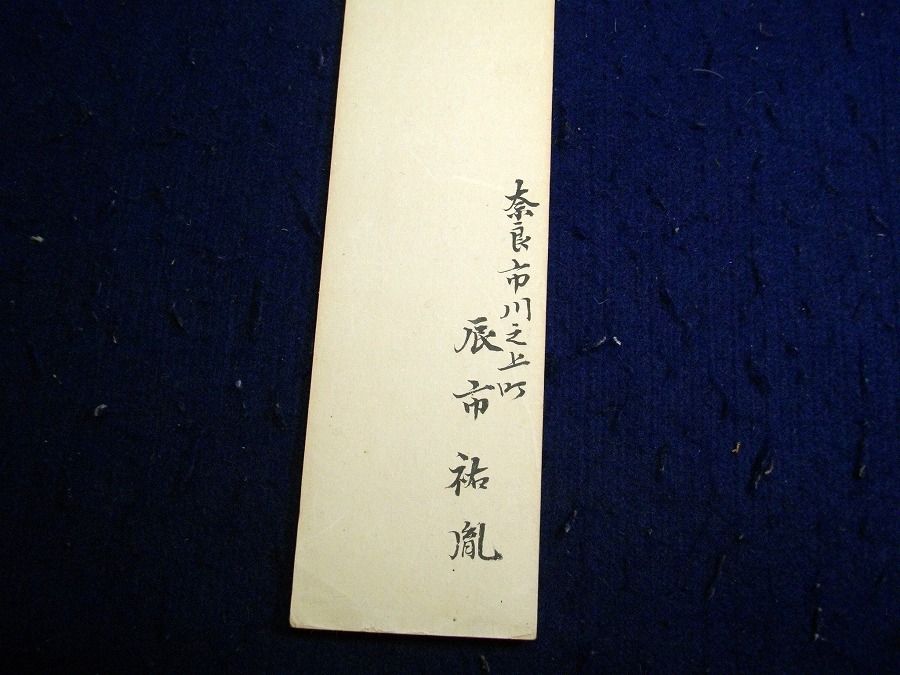 奈良市川之上町
辰市祐胤